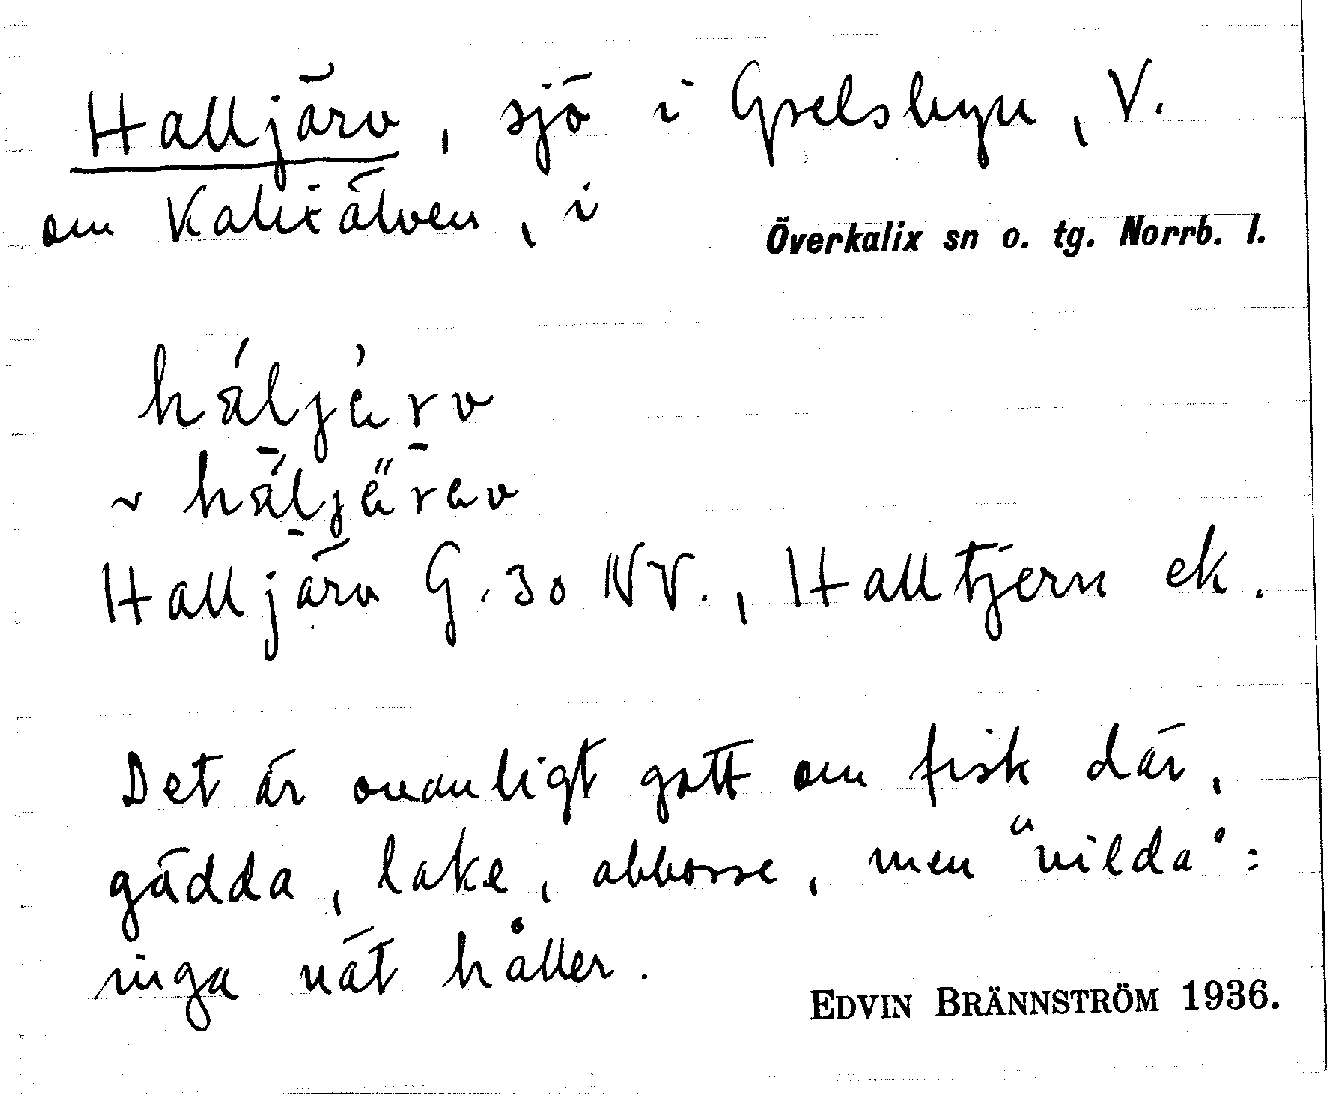 Halljärv, sjö i Grelsbyn, V.
om Kalixälven, i Överkalix sn o. tg. Norrb. l.
háljàrv
~ háljärav
Halljärv G. 30 NV., Halltjern ek.
Det är ovanligt gott om fisk där,
gädda, lake, abborre, men "vilda":
inga nät håller.
EDVIN BRÄNNSTRÖM 1936.